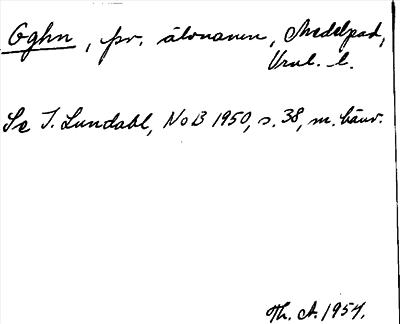 Oghn, fsv. älvnamn, Medelpad,
l.
Se I. Lundahl, NoB 1950, s. 38, m. hänv.
Th. A. 1954.